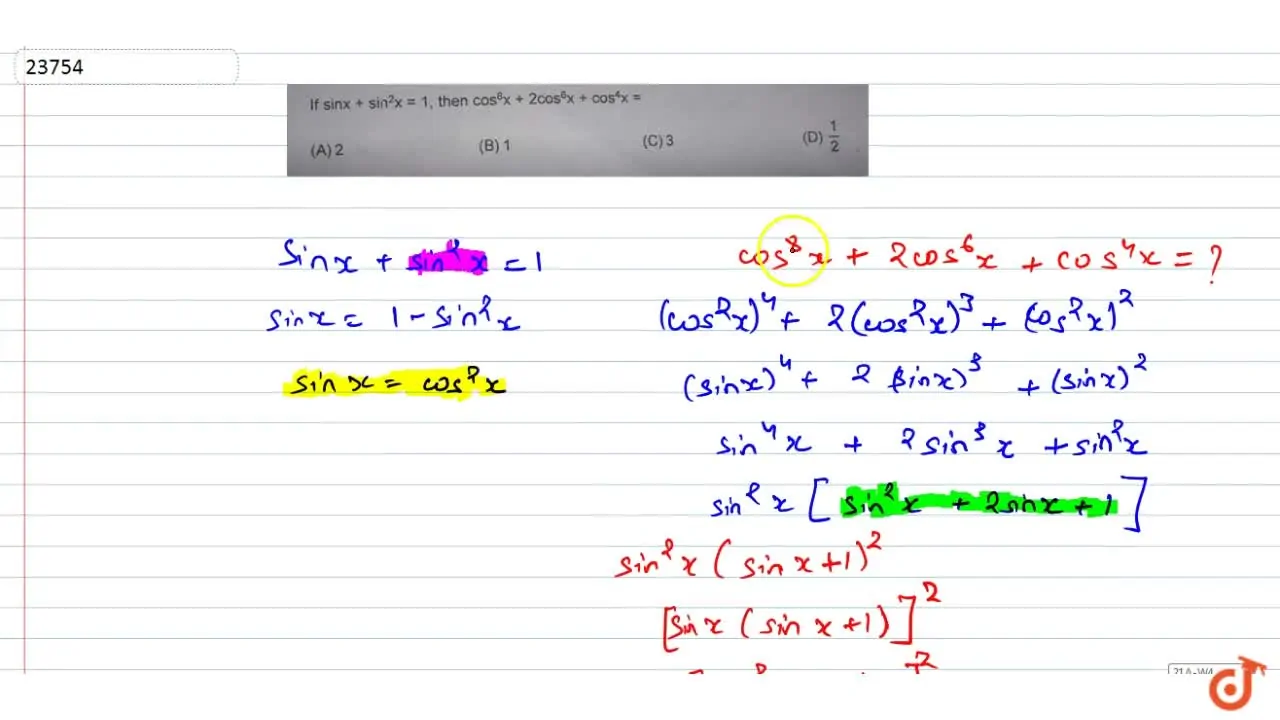 23754
If sinx + sin²x = 1, then cos⁸x + 2cos⁶x + cos⁴x =
(A) 2 (B) 1 (C) 3 (D) 1/2
sinx + sin²x = 1
sinx = 1 - sin²x
sinx = cos²x
cos⁸x + 2cos⁶x + cos⁴x = ?
(cos²x)⁴ + 2(cos²x)³ + (cos²x)²
(sinx)⁴ + 2 (sinx)³ + (sinx)²
sin⁴x + 2sin³x + sin²x
sin²x [ sin²x + 2sinx + 1 ]
sin²x ( sinx + 1)²
[sinx (sinx + 1)]²